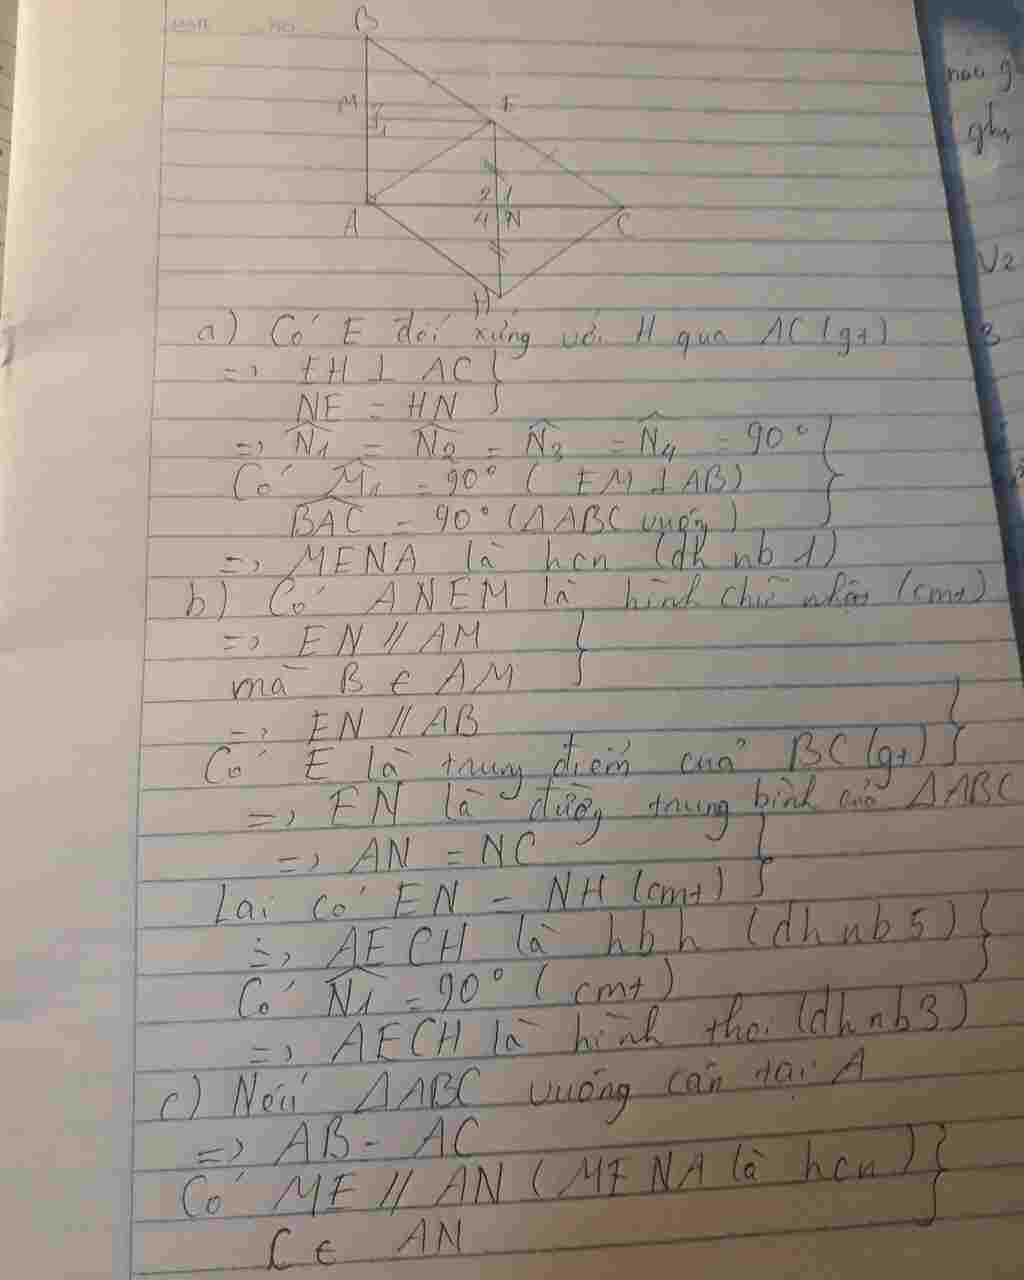 DATE NO
B
M
E
1
2 1
A
4 N
C
H
a) Có E đối xứng với H qua AC (gt)
=> EH ⊥ AC }
NE = HN
=> N̂1 = N̂2 = N̂3 = N̂4 = 90°
Có M̂1 = 90° ( EM ⊥ AB) }
BAC = 90° (ΔABC vuông)
=> MENA là hcn (dh nb 1)
b) Có ANEM là hình chữ nhật (cmt)
=> EN // AM }
mà B ∈ AM
=> EN // AB
Có E là trung điểm của BC (gt) }
=> EN là đường trung bình của ΔABC
=> AN = NC
Lại có EN = NH (cmt) }
=> AECH là hbh (dh nb 5) }
Có N̂1 = 90° ( cmt)
=> AECH là hình thoi (dh nb3)
c) Nếu ΔABC vuông cân tại A
=> AB = AC
Có ME // AN ( MENA là hcn ) }
C ∈ AN
V2
3